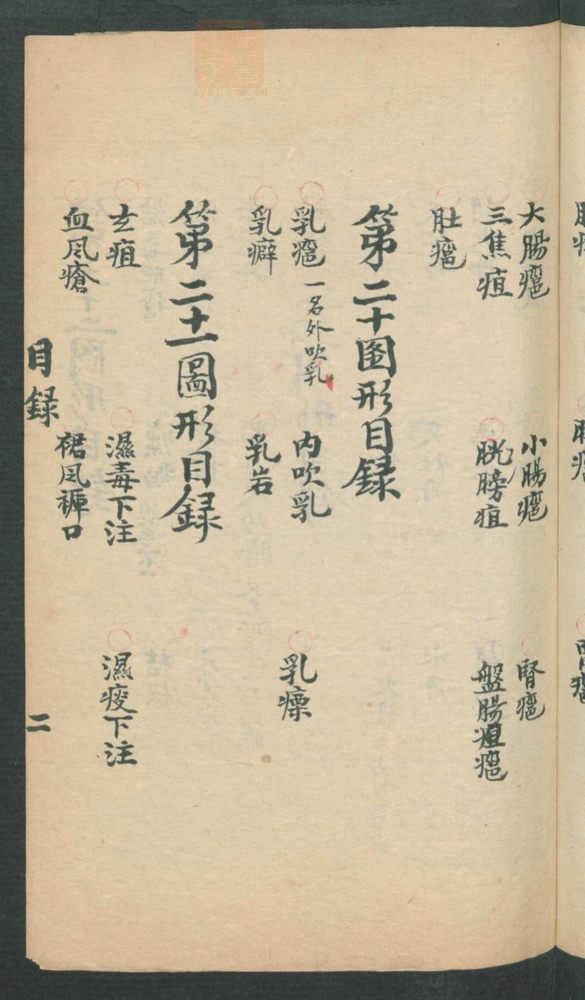 大腸癰 小腸癰 腎癰
三焦疽 胱膀疽 盤腸疽癰
肚癰
第二十图形目録
乳癰 一名外吹乳 内吹乳 乳瘰
乳癖 乳岩
第二十一圖形目録
玄疽 濕毒下注 濕痰下注
血風瘡 裙風褲口
目録 二